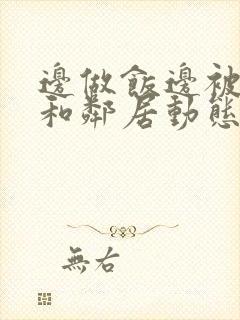 邊做飯邊被
和鄰居動態
無右